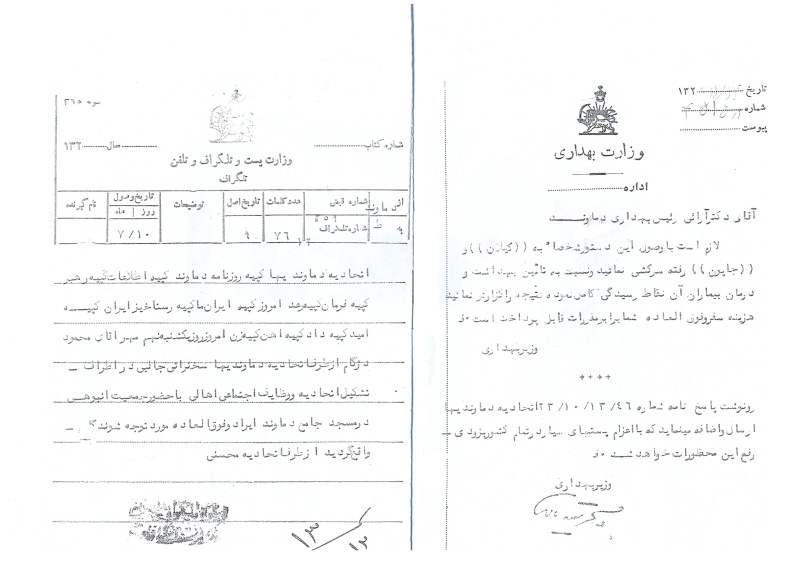 تاریخ ۱۳۲
شماره
پیوست
وزارت بهداری
اداره
آقای دکتر آرائی رئیس بهداری دماوند
لازم است با وصول این دستور شخصا به ((کیلان)) و
((جابون)) رفته سرکشی نمائید و نسبت به تأمین بهداشت و
درمان بیماران آن نقاط رسیدگی کامل نموده نتیجه را گزارش نمائید
هزینه سفر و فوق العاده شما برابر مقررات قابل پرداخت است
وزیر بهداری
++++
رونوشت پاسخ نامه شماره ۴۶/۱۳/۱۰/۲۳ اتحادیه دماوندیها
ارسال و اضافه مینماید که با اعزام پستهای سیار در تمام کشور بزودی
رفع این محظورات خواهد شد
وزیر بهداری
۲۶۵
شماره کتاب سال ۱۳۲
وزارت پست و تلگراف و تلفن
تلگراف
از دماوند شماره قبض عدد کلمات تاریخ اصل توضیحات تاریخ وصول نام گیرنده
روز ماه
ط شماره تلگراف ۷۶ ۹ ۷/۱۰
اتحادیه دماوندیها کپیه روزنامه دماوند کپیه اطلاعات کپیه رهبر
کپیه فرمان کپیه رعد امروز کپیه ایران ما کپیه رستاخیز ایران کپیه
امید کپیه داد کپیه کپیه امروز روز یکشنبه نهم مهر آقای محمود
از طرف اتحادیه دماوندیها سخنرانی جالبی در اطراف
تشکیل اتحادیه و وظایف اجتماعی اهالی با حضور جمعیت انبوهی
در مسجد جامع دماوند ایراد و فوق العاده مورد توجه شنوندگان
واقع گردید از طرف اتحادیه محسنی